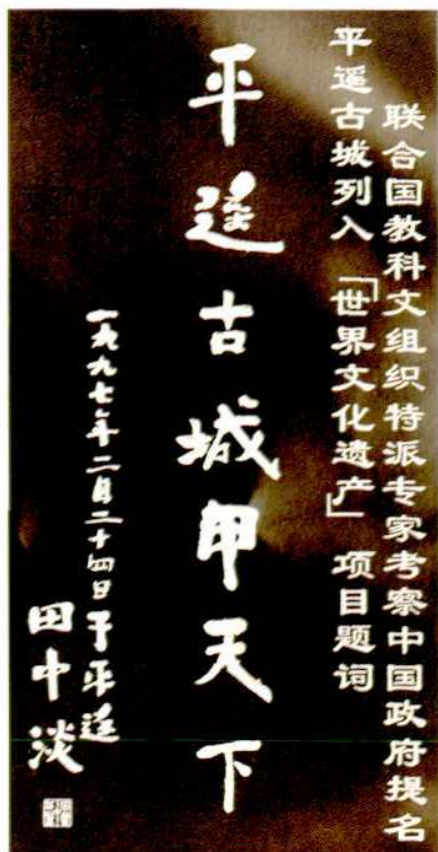 联合国教科文组织特派专家考察中国政府提名
平遥古城列入「世界文化遗产」项目题词
平遥古城甲天下
一九九七年二月二十四日于平遥
田中淡